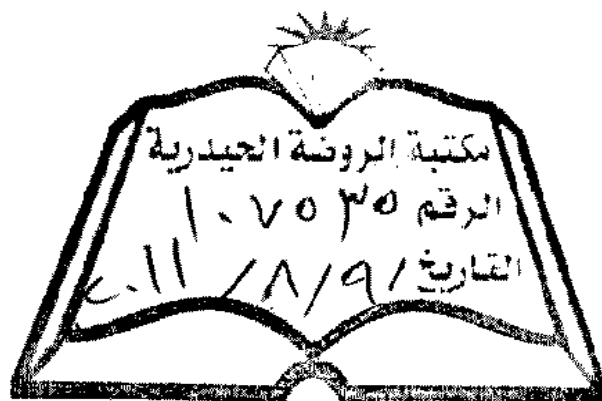 مكتبة الروضة الحيدرية
الرقم ١٠٧٥٣٥
التاريخ ٩/٨/٢٠١١